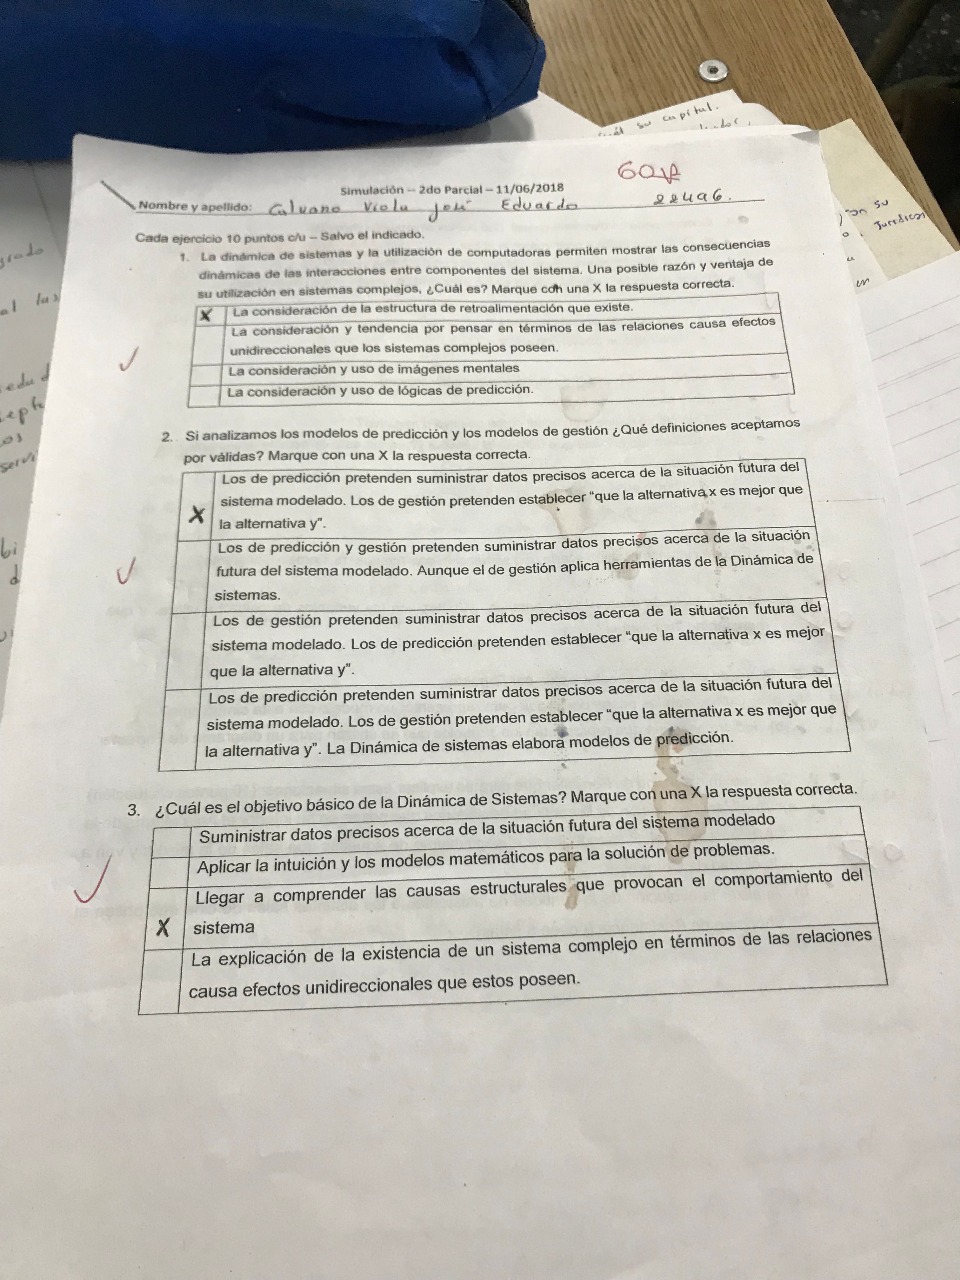 uál su capital.
60
Simulación – 2do Parcial – 11/06/2018
Nombre y apellido: Galvano Viola José Eduardo 22496.
Cada ejercicio 10 puntos c/u – Salvo el indicado.
1. La dinámica de sistemas y la utilización de computadoras permiten mostrar las consecuencias
dinámicas de las interacciones entre componentes del sistema. Una posible razón y ventaja de
su utilización en sistemas complejos, ¿Cuál es? Marque con una X la respuesta correcta.
X La consideración de la estructura de retroalimentación que existe.
La consideración y tendencia por pensar en términos de las relaciones causa efectos
unidireccionales que los sistemas complejos poseen.
La consideración y uso de imágenes mentales
La consideración y uso de lógicas de predicción.
2. Si analizamos los modelos de predicción y los modelos de gestión ¿Qué definiciones aceptamos
por válidas? Marque con una X la respuesta correcta.
Los de predicción pretenden suministrar datos precisos acerca de la situación futura del
X sistema modelado. Los de gestión pretenden establecer "que la alternativa x es mejor que
la alternativa y".
Los de predicción y gestión pretenden suministrar datos precisos acerca de la situación
futura del sistema modelado. Aunque el de gestión aplica herramientas de la Dinámica de
sistemas.
Los de gestión pretenden suministrar datos precisos acerca de la situación futura del
sistema modelado. Los de predicción pretenden establecer "que la alternativa x es mejor
que la alternativa y".
Los de predicción pretenden suministrar datos precisos acerca de la situación futura del
sistema modelado. Los de gestión pretenden establecer "que la alternativa x es mejor que
la alternativa y". La Dinámica de sistemas elabora modelos de predicción.
3. ¿Cuál es el objetivo básico de la Dinámica de Sistemas? Marque con una X la respuesta correcta.
Suministrar datos precisos acerca de la situación futura del sistema modelado
Aplicar la intuición y los modelos matemáticos para la solución de problemas.
Llegar a comprender las causas estructurales que provocan el comportamiento del
X sistema
La explicación de la existencia de un sistema complejo en términos de las relaciones
causa efectos unidireccionales que estos poseen.